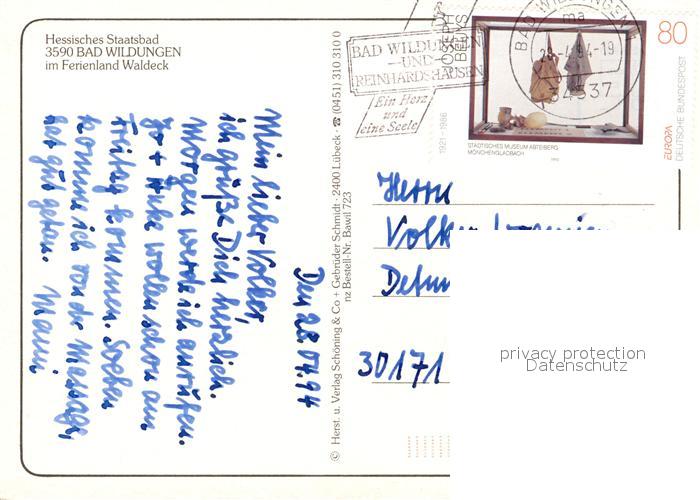 Hessisches Staatsbad
3590 BAD WILDUNGEN
im Ferienland Waldeck
Den 28.04.94
Mein lieber Volker,
ich grüße Dich herzlich.
Morgen werde ich anrufen.
+ Anke wollen schon am
Freitag kommen. Soeben
komme ich von der Massage,
hat gut getan. Mami
© Herst. u. Verlag Schöning & Co + Gebrüder Schmidt · 2400 Lübeck · ☎ (0451) 310 310 0
nz Bestell-Nr. Bawil 723
BAD WILDUNGEN
—UND—
REINHARDSHAUSEN
Ein Herz
und
eine Seele
BAD WILDUNGEN 1
ma
28-4.94-19
34537
JOSEPH
BEUYS
1921-1986
80
DEUTSCHE BUNDESPOST
EUROPA
STÄDTISCHES MUSEUM ABTEIBERG
MÖNCHENGLADBACH
Herrn
Volk
Detm
30171
privacy protection
Datenschutz